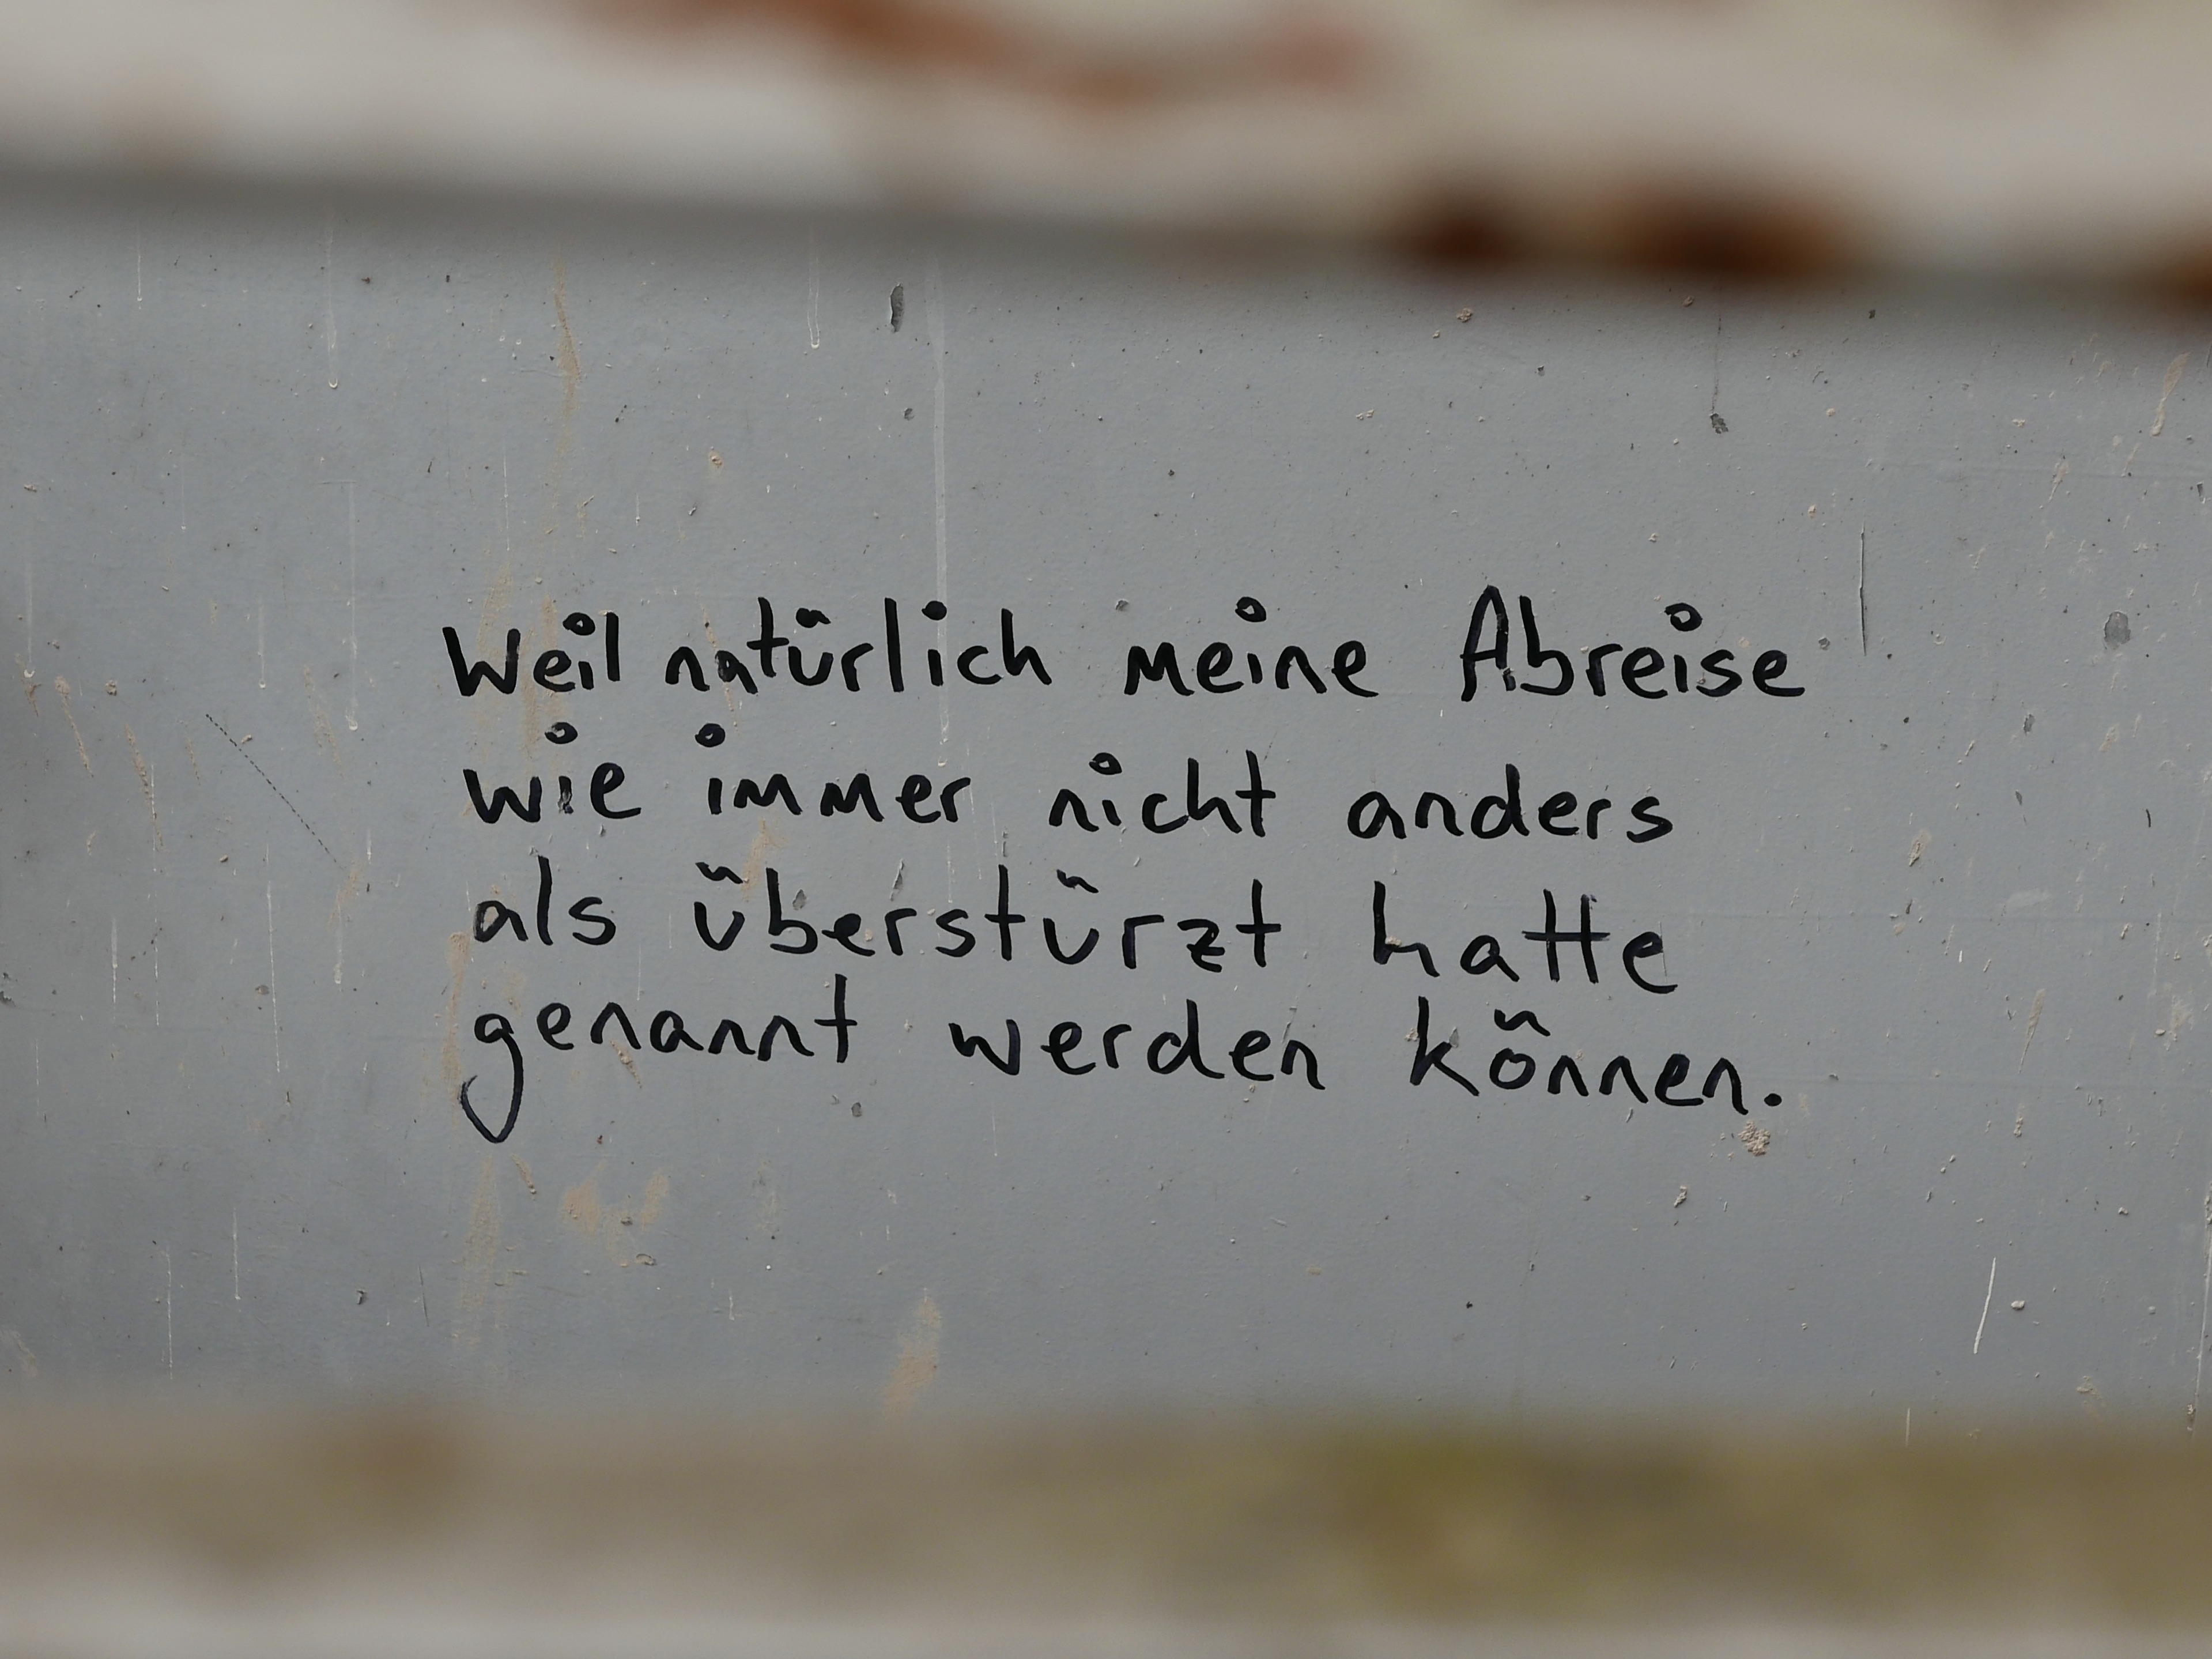 Weil natürlich meine Abreise
wie immer nicht anders
als überstürzt hatte
genannt werden können.